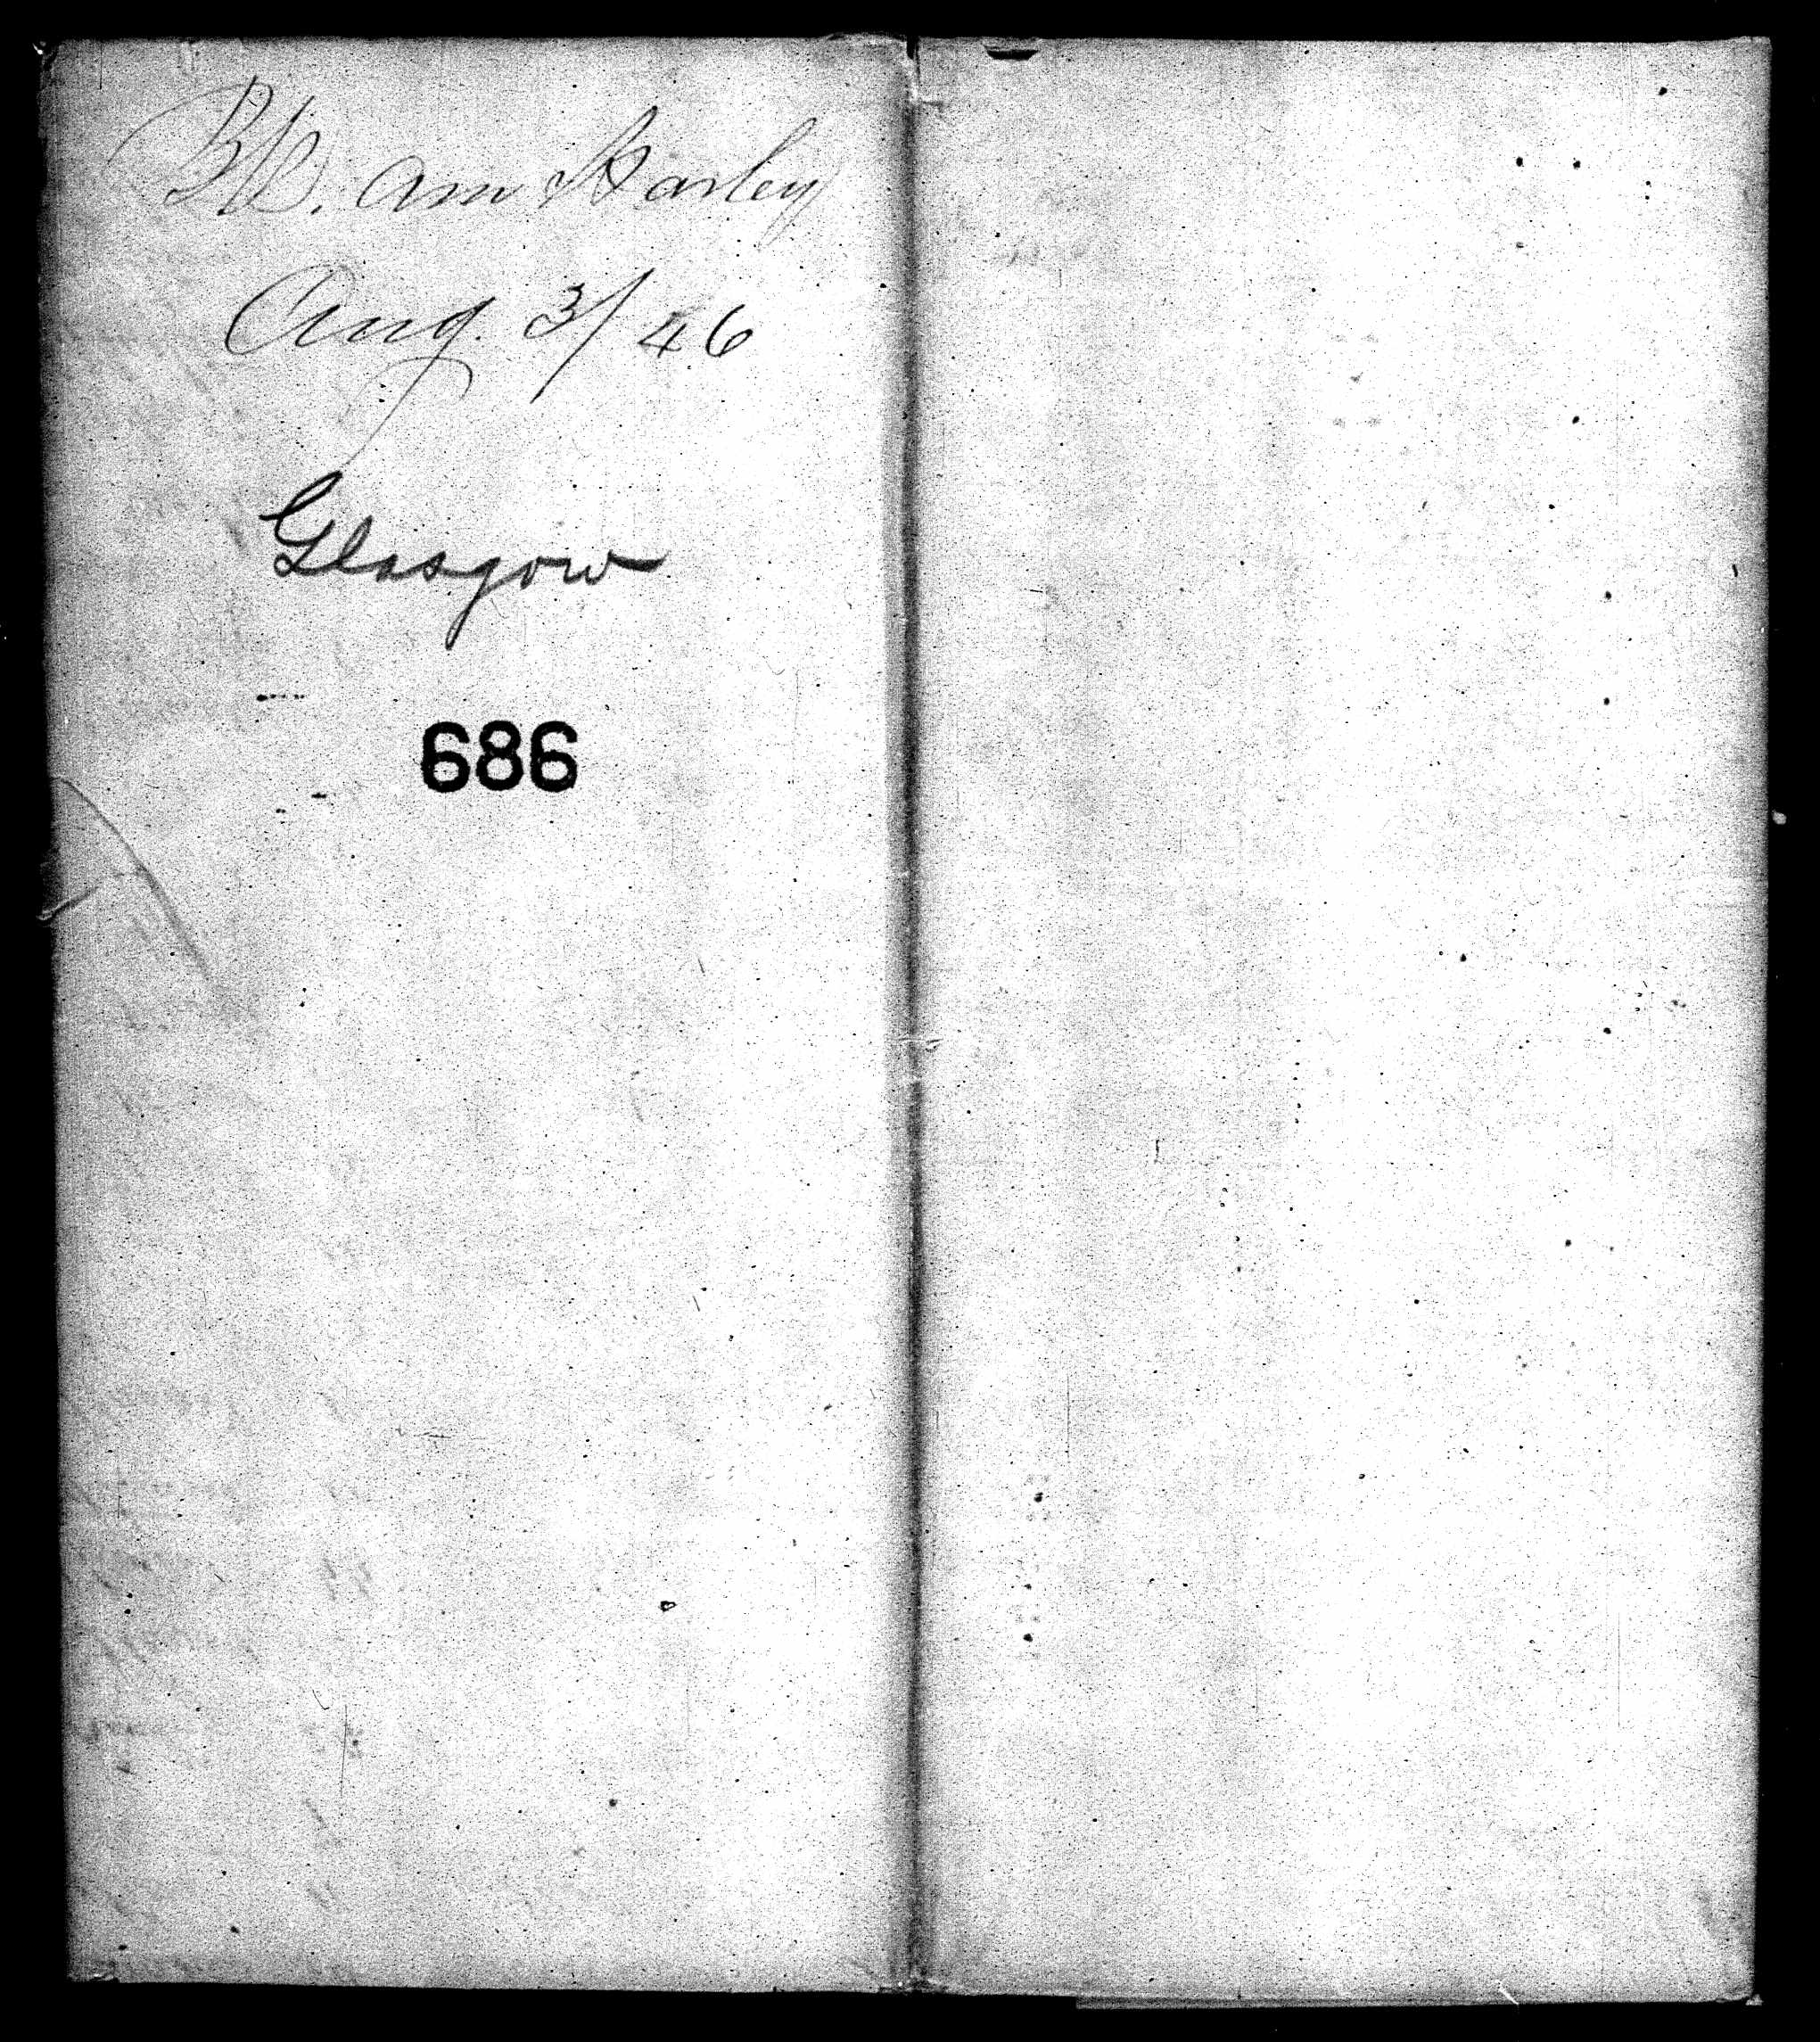 Bk. Ann Harley
Aug. 3/46
Glasgow
686